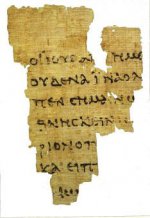 ΟΙ ΙΟΥΔΑ ΗΜΕ
ΟΥΔΕΝΑ ΙΝΑ Ο Λ
ΠΕΝ ϹΗΜΑΙΝΩ
ΘΝΗϹΚΕΙΝ
ΡΙΟΝ Ο Π
ΚΑΙ ΕΙΠ